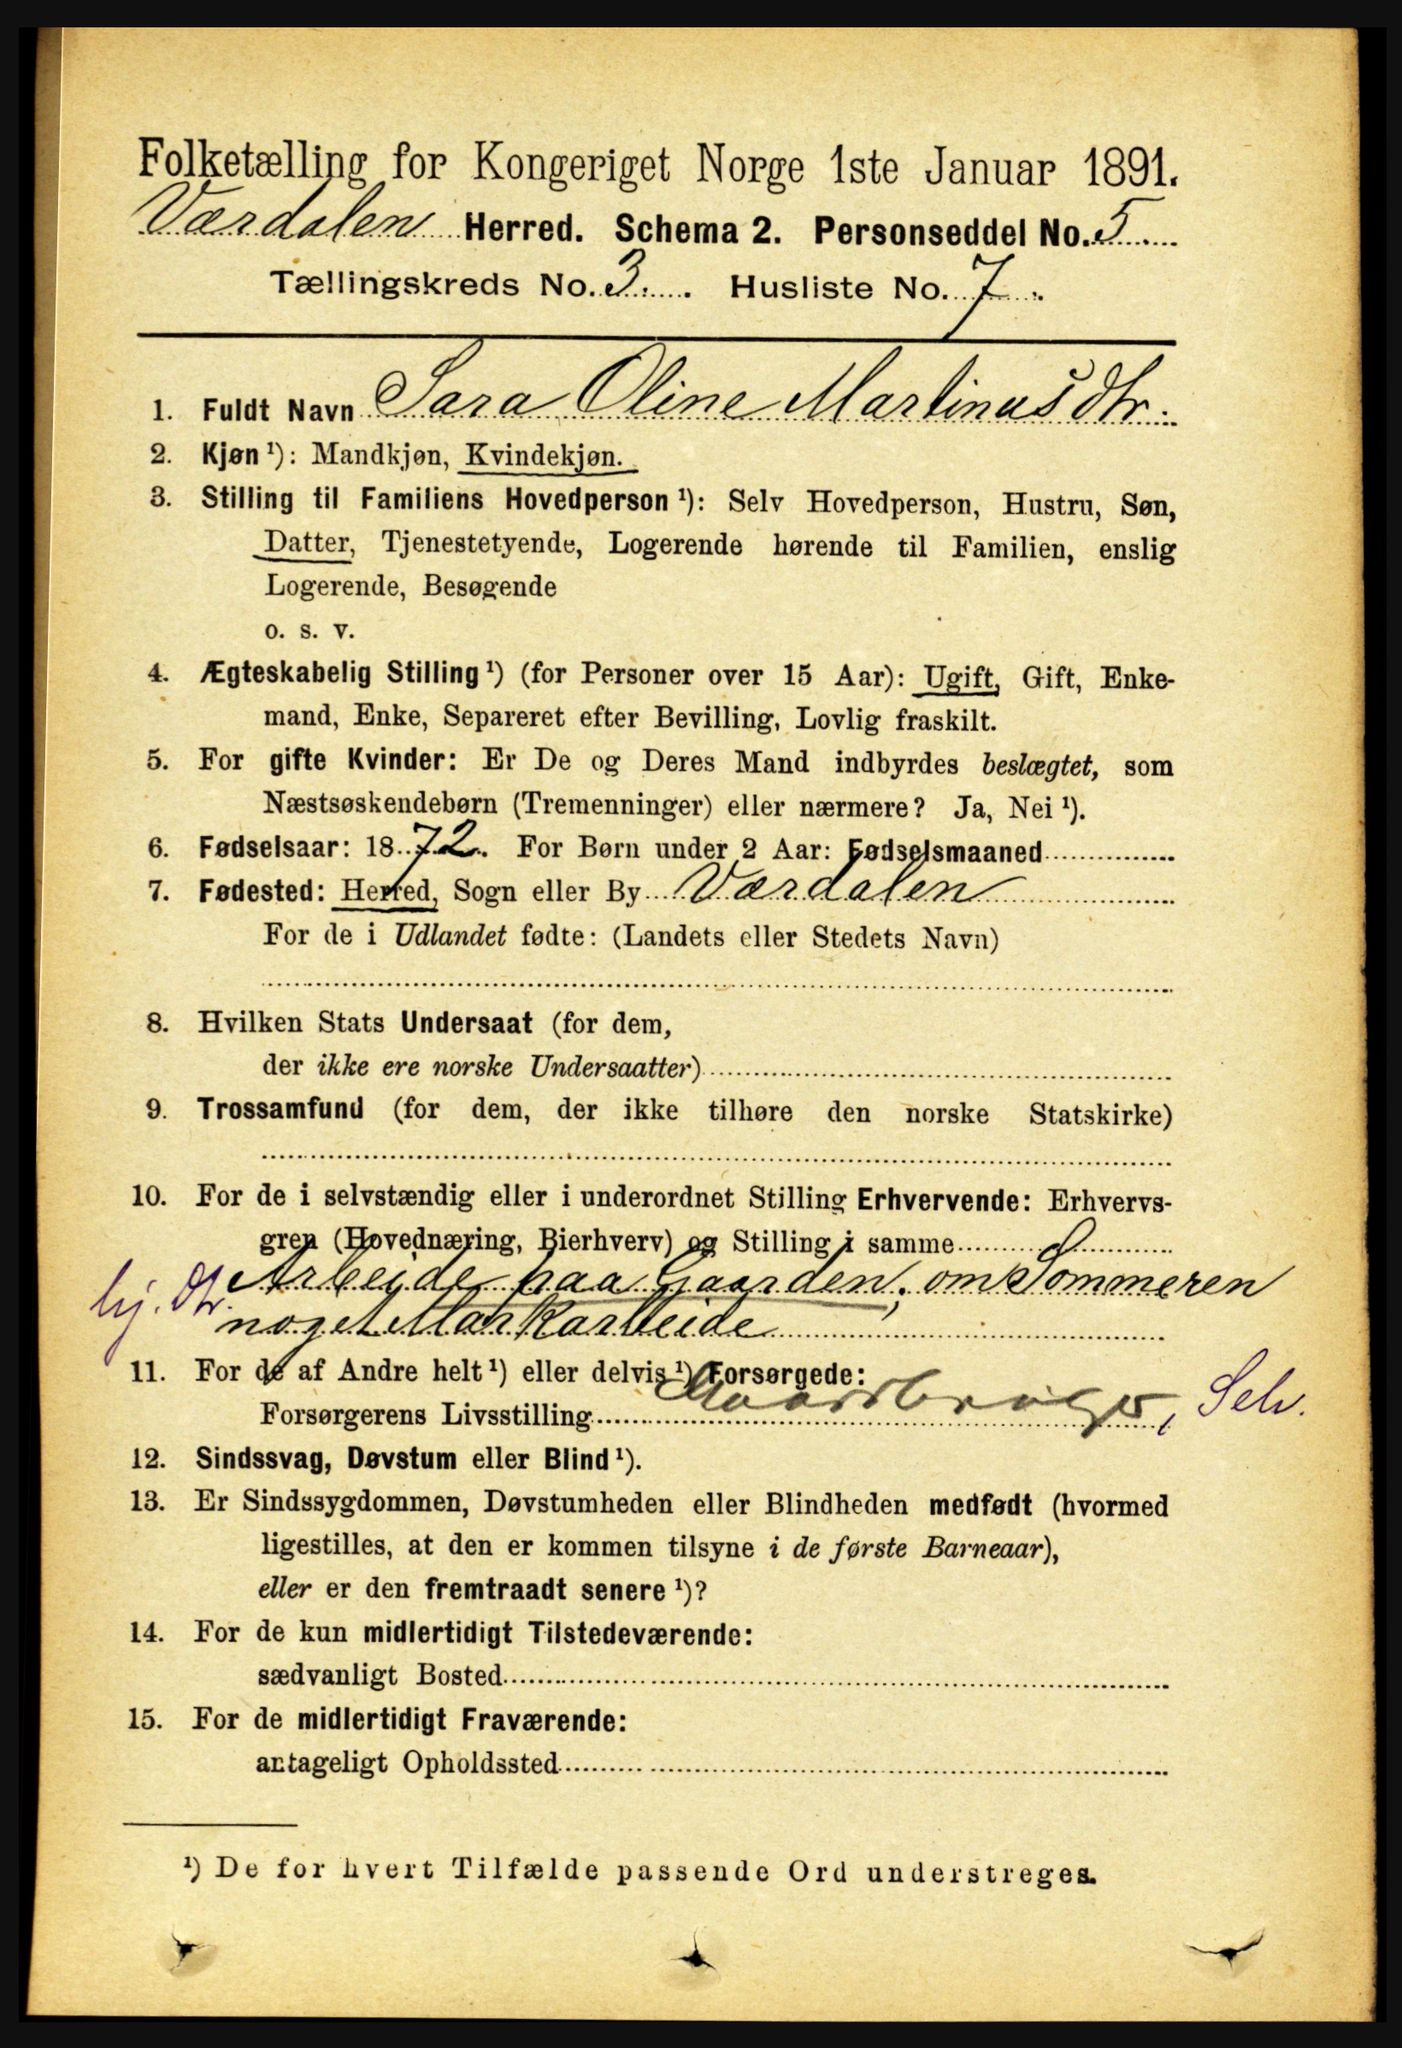 Folketælling for Kongeriget Norge 1ste Januar 1891.
Værdalen Herred. Schema 2. Personseddel No. 5
Tællingskreds No. 3. Husliste No. 7.
1. Fuldt Navn Sara Oline Martinusdtr.
2. Kjøn ¹): Mandkjøn, Kvindekjøn.
3. Stilling til Familiens Hovedperson ¹): Selv Hovedperson, Hustru, Søn,
Datter, Tjenestetyende, Logerende hørende til Familien, enslig
Logerende, Besøgende
o. s. v.
4. Ægteskabelig Stilling ¹) (for Personer over 15 Aar): Ugift, Gift, Enke-
mand, Enke, Separeret efter Bevilling, Lovlig fraskilt.
5. For gifte Kvinder: Er De og Deres Mand indbyrdes beslægtet, som
Næstsøskendebørn (Tremenninger) eller nærmere? Ja, Nei ¹).
6. Fødselsaar: 1872. For Børn under 2 Aar: Fødselsmaaned
7. Fødested: Herred, Sogn eller By Værdalen
For de i Udlandet fødte: (Landets eller Stedets Navn)
8. Hvilken Stats Undersaat (for dem,
der ikke ere norske Undersaatter)
9. Trossamfund (for dem, der ikke tilhøre den norske Statskirke)
10. For de i selvstændig eller i underordnet Stilling Erhvervende: Erhvervs-
gren (Hovednæring, Bierhverv) og Stilling i samme
Arbeide paa Gaarden, om Sommeren
hj. dtr. noget Markarbeide
11. For de af Andre helt ¹) eller delvis ¹) Forsørgede:
Forsørgerens Livsstilling Gaardbruger, Selv.
12. Sindssvag, Døvstum eller Blind ¹).
13. Er Sindssygdommen, Døvstumheden eller Blindheden medfødt (hvormed
ligestilles, at den er kommen tilsyne i de første Barneaar),
eller er den fremtraadt senere ¹)?
14. For de kun midlertidigt Tilstedeværende:
sædvanligt Bosted
15. For de midlertidigt Fraværende:
antageligt Opholdssted
¹) De for hvert Tilfælde passende Ord understreges.